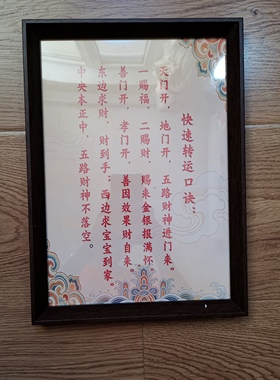 快速转运口诀：
天门开，地门开，五路财神进门来。
一赐福，二赐财，赐来金银报满怀。
善门开，孝门开，善因效果财自来。
东边求财，财到手；西边求宝宝到家。
中央本正中，五路财神不落空。